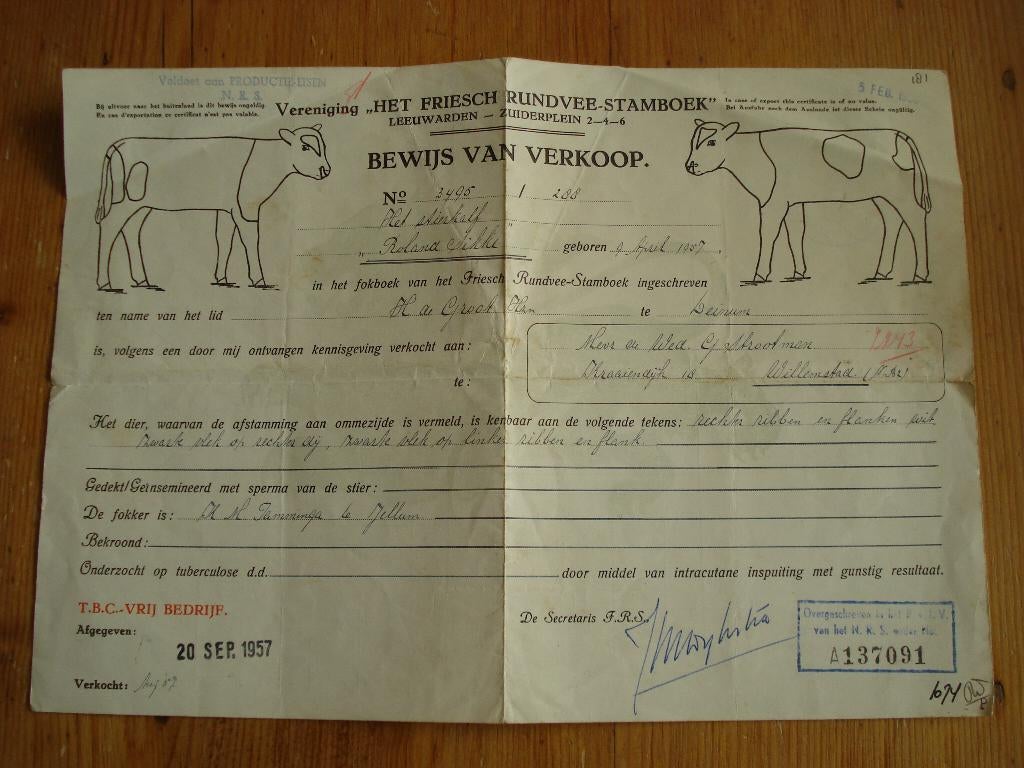 Voldoet aan PRODUCTIE-EISEN
N. R. S.
181
5 FEB.
Bij uitvoer naar het buitenland is dit bewijs ongeldig.
En cas d'exportation ce certificat n'est pas valable.
In case of export this certificate is of no value.
Bei Ausfuhr nach dem Auslande ist dieser Schein ungültig.
Vereniging „HET FRIESCH RUNDVEE-STAMBOEK"
LEEUWARDEN – ZUIDERPLEIN 2–4–6
BEWIJS VAN VERKOOP.
No 3495 / 288
Het stierkalf
„Roland Sikke" geboren 9 April 1957.
in het fokboek van het Friesch Rundvee-Stamboek ingeschreven
ten name van het lid H de Groot Hzn te Deinum
is, volgens een door mij ontvangen kennisgeving verkocht aan: Mevr de Wed. Strootman
te: 18 Willemstad (N.Br)
Het dier, waarvan de afstamming aan ommezijde is vermeld, is kenbaar aan de volgende tekens: rechter ribben en flanken wit
zwarte vlek op rechter dij, zwarte vlek op linker ribben en flank.
Gedekt/Geïnsemineerd met sperma van de stier:
De fokker is: H Tamminga te Jellum
Bekroond:
Onderzocht op tuberculose d.d. door middel van intracutane inspuiting met gunstig resultaat.
T.B.C.-VRIJ BEDRIJF.
Afgegeven:
20 SEP. 1957
De Secretaris F.R.S.,
Overgeschreven in het
van het N. R. S. onder No.
A137091
Verkocht: Aug 57
1674